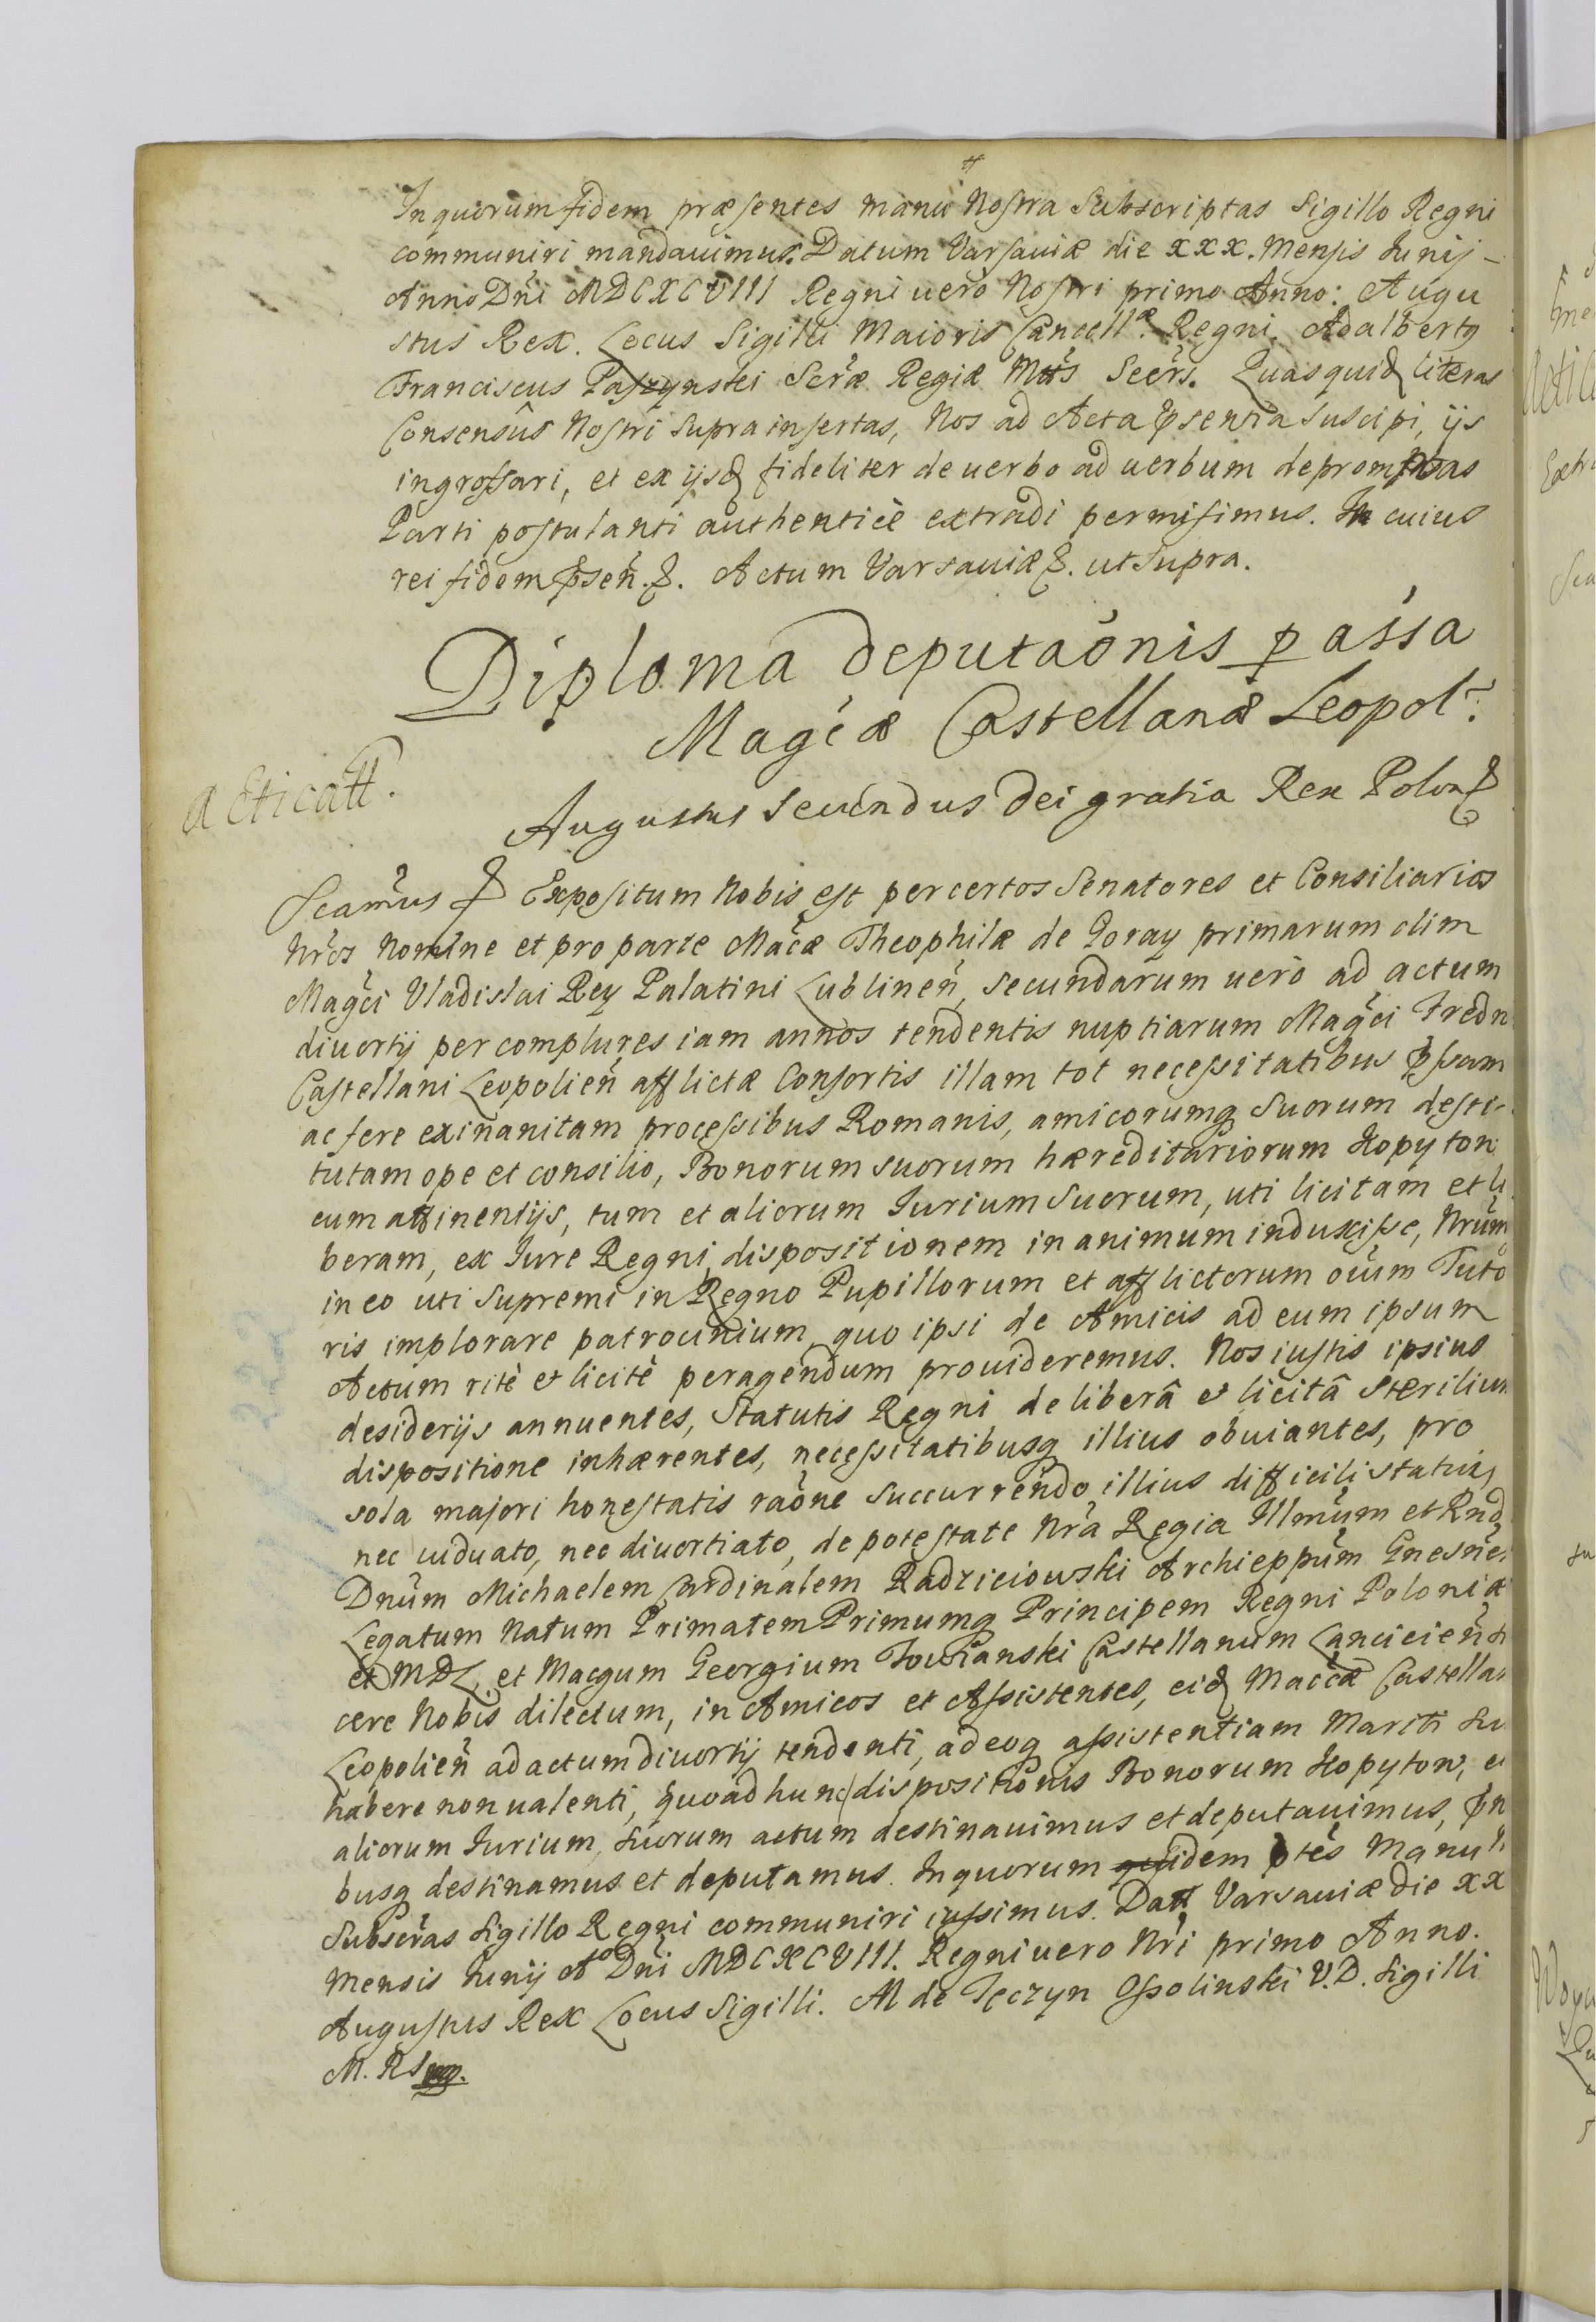 In quorum fidem præsentes manu Nostra Subscriptas Sigillo Regni
communiri mandavimus. Datum Varsaviæ die XXX. Mensis Junij -
Anno Dni MDCXCVIII Regni uero Nostri primo Anno: Augu
stus Rex. Locus Sigilli Maioris Cancellæ Regni. Adalbertg
Franciscus Paszynski Scræ Regiæ Mttis Secrs. Quasquid literas
Consensûs Nostri supra insertas, Nos ad Acta psentia suscipi, ijs
ingrossari, et ex ijsd fideliter de uerbo ad uerbum depromptas
Parti postulanti authenticè extradi permisimus. In cuius
rei fidem psen. &. Actum Varsaviæ &. ut supra.
Diploma deputaonis p assa
Magcæ Castellanæ Leopol:
Acticatt.
Augustus Secundus Dei gratia Rex Polon &
Scamus & Expositum Nobis est per certos Senatores et Consiliarios
Nros Nomine et pro parte Macæ Theophilæ de Goray primarum olim
Magci Vladislai Rey Palatini Lublinen, secundarum uerò ad actum
diuortij per complures iam annos tendentis nuptiarum Magci Fredr
Castellani Leopolien afflictæ Consortis illam tot necessitatibus pssam
ac fere exinanitam processibus Romanis, amicorumq suorum desti-
tutam ope et consilio, Bonorum suorum hæreditariorum Kopyton
cum attinentijs, tum et aliorum Jurium Suorum, uti licitam et li
beram, ex Jure Regni, dispositionem in animum induxisse, Nrum
in eo uti Supremi in Regno Pupillorum et afflictorum oium Tuto
ris implorare patrocinium, quo ipsi de Amicis ad eum ipsum
Actum ritè et licitè peragendum prouideremus. Nos iustis ipsius
desiderijs annuentes, Statutis Regni de liberâ et licitâ sterilium
dispositione inhærentes, necessitatibusq illius obuiantes, pro
sola majori honestatis raone succurrendo illius difficili statui,
nec uiduato, nec diuortiato, de potestate Nra Regia Illmum et Rnd
Dnum Michaelem Cardinalem Radzieiowski Archieppum Gnesnen
Legatum Natum Primatem Primumq Principem Regni Poloniæ
et MDL et Macgum Georgium Towianski Castellanum Lancicien sin
cere Nobis dilectum, in Amicos et Assistentes, eid Maccæ Castellan
Leopolien ad actum diuortij tendenti, adeoq assistentiam Mariti su
habere non ualenti, quoad hunc dispositionis Bonorum Kopytow, et
aliorum Jurium, suorum actum destinauimus et deputauimus, pn
busq destinamus et deputamus. In quorum fidem ptes Manu N
Subscras Sigillo Regni communiri iussimus. Datt Varsaviæ die XX
Mensis Junij Ao Dni MDCXCVIII. Regni uero Nri primo Anno.
Augustus Rex Locus Sigilli. M de Tęczyn Ossolinski V.D. Sigilli
M. RS mp.